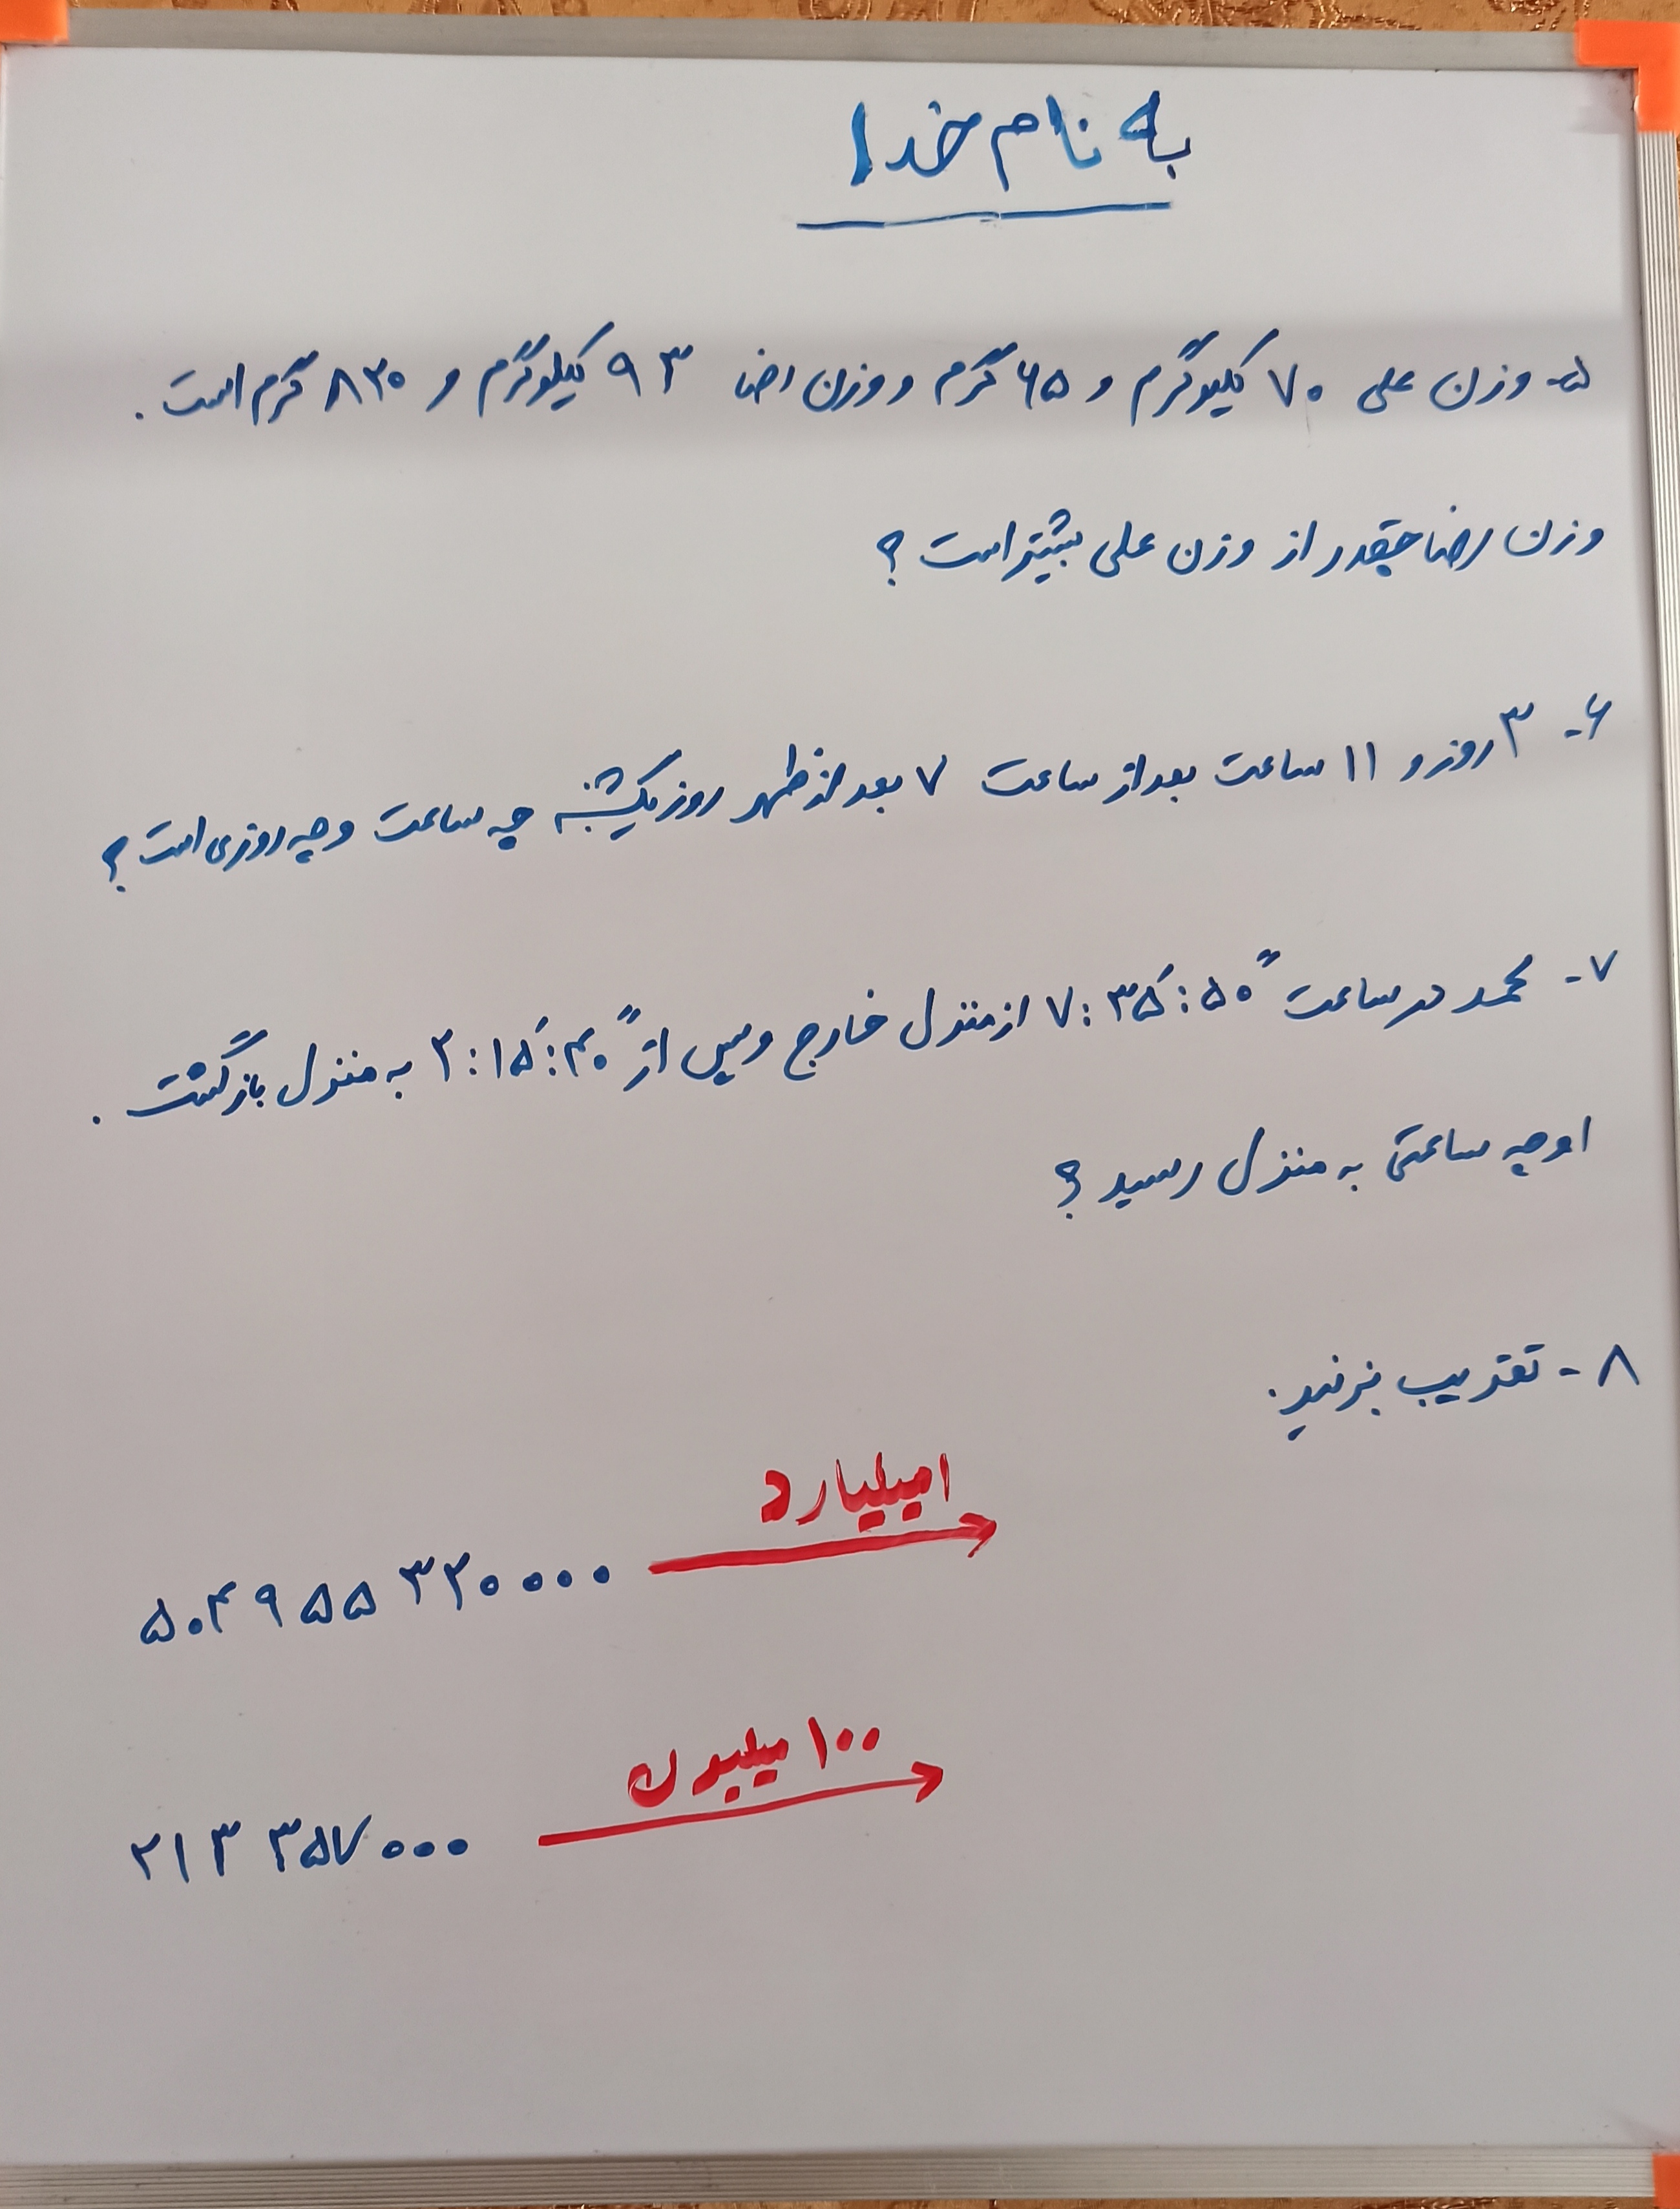 به نام خدا
۵- وزن علی ۷۰ کیلوگرم و ۶۵ گرم و وزن رضا ۹۳ کیلوگرم و ۸۳۰ گرم است.
وزن رضا چقدر از وزن علی بیشتر است؟
۶- ۳ روز و ۱۱ ساعت بعد از ساعت ۷ بعد از ظهر روز یکشنبه چه ساعت و چه روزی است؟
۷- محمد در ساعت ۷:۳۵′:۵۰″ از منزل خارج و پس از ۲:۱۵′:۴۰″ به منزل بازگشت.
او چه ساعتی به منزل رسید؟
۸- تقریب بزنید.
۱میلیارد
۵۰۴۹۵۵۳۲۰۰۰۰
۱۰۰ میلیون
۲۱۳۳۵۷۰۰۰